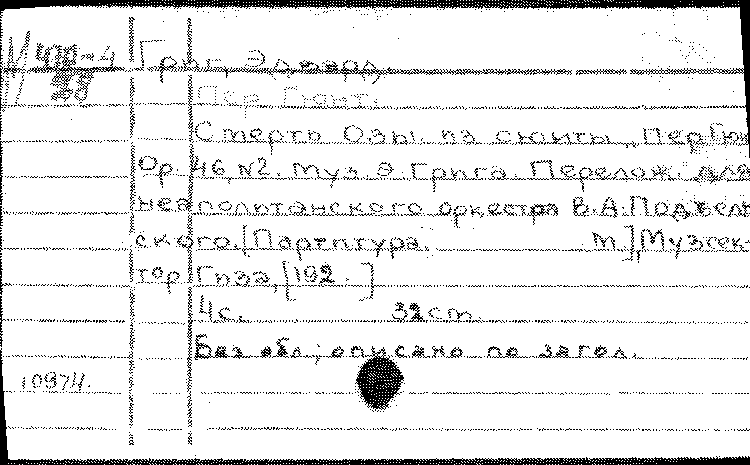 Григ, Эдвард.
Пер Гюнт.
Смерть Озы из сюиты „Пер Гюн
Ор. 46, №2. Муз. Э. Грига. Перелож. для
неаполитанского оркестра В.А. Подъель
ского. [Партитура. м.], Музсек-
тор Гиза, [192 . ]
4с. 32см.
Без обл.; описано по загол.
10974.